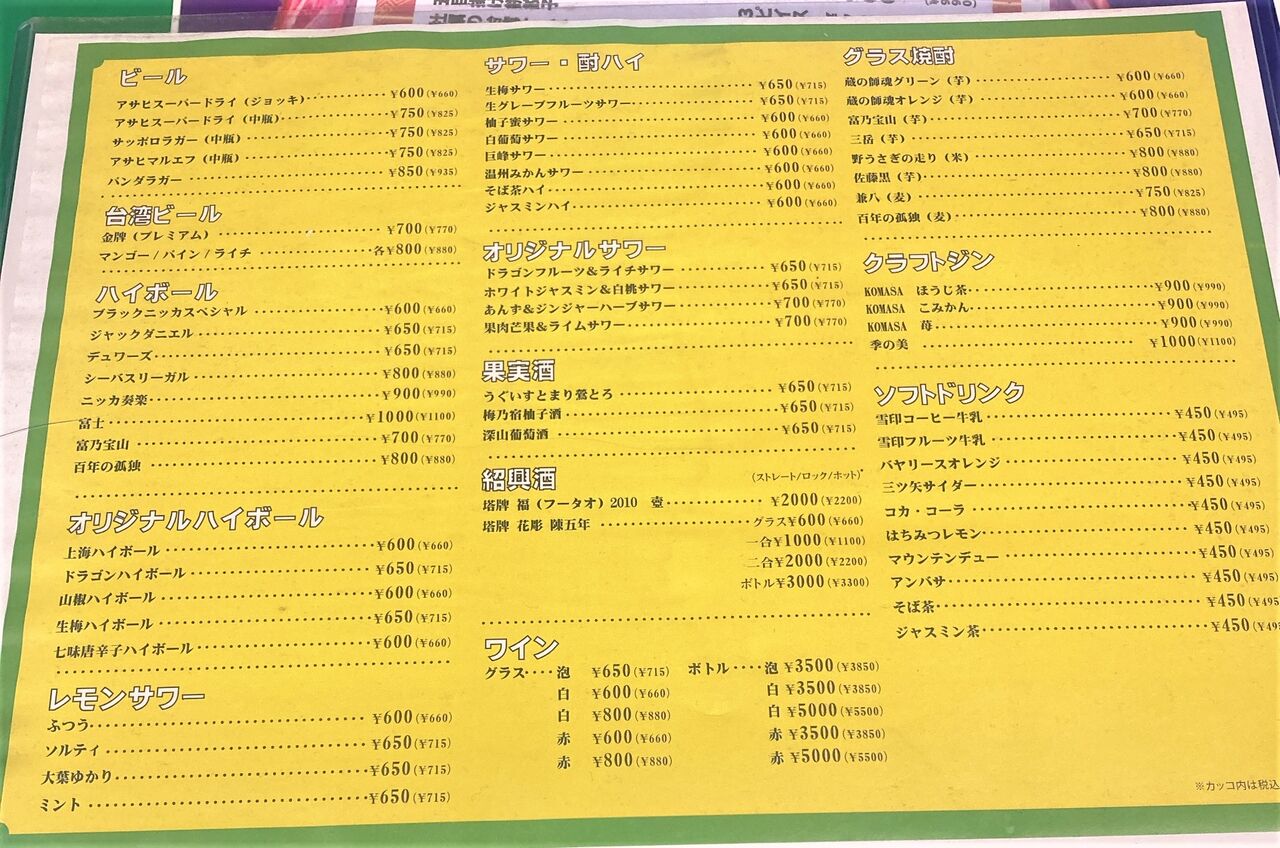 ビール
アサヒスーパードライ（ジョッキ）¥600(¥660)
アサヒスーパードライ（中瓶）¥750(¥825)
サッポロラガー（中瓶）¥750(¥825)
アサヒマルエフ（中瓶）¥750(¥825)
パンダラガー ¥850(¥935)
台湾ビール
金牌（プレミアム）¥700(¥770)
マンゴー/パイン/ライチ 各¥800(¥880)
ハイボール
ブラックニッカスペシャル ¥600(¥660)
ジャックダニエル ¥650(¥715)
デュワーズ ¥650(¥715)
シーバスリーガル ¥800(¥880)
ニッカ奏楽 ¥900(¥990)
富士 ¥1000(¥1100)
富乃宝山 ¥700(¥770)
百年の孤独 ¥800(¥880)
オリジナルハイボール
上海ハイボール ¥600(¥660)
ドラゴンハイボール ¥650(¥715)
山椒ハイボール ¥600(¥660)
生梅ハイボール ¥650(¥715)
七味唐辛子ハイボール ¥600(¥660)
レモンサワー
ふつう ¥600(¥660)
ソルティ ¥650(¥715)
大葉ゆかり ¥650(¥715)
ミント ¥650(¥715)
サワー・酎ハイ
生梅サワー ¥650(¥715)
生グレープフルーツサワー ¥650(¥715)
柚子蜜サワー ¥600(¥660)
白葡萄サワー ¥600(¥660)
巨峰サワー ¥600(¥660)
温州みかんサワー ¥600(¥660)
そば茶ハイ ¥600(¥660)
ジャスミンハイ ¥600(¥660)
オリジナルサワー
ドラゴンフルーツ&ライチサワー ¥650(¥715)
ホワイトジャスミン&白桃サワー ¥650(¥715)
あんず&ジンジャーハーブサワー ¥700(¥770)
果肉芒果&ライムサワー ¥700(¥770)
果実酒
うぐいすとまり鶯とろ ¥650(¥715)
梅乃宿柚子酒 ¥650(¥715)
深山葡萄酒 ¥650(¥715)
紹興酒 (ストレート/ロック/ホット)*
塔牌 福（フータオ）2010 壺 ¥2000(¥2200)
塔牌 花彫 陳五年 グラス¥600(¥660)
一合¥1000(¥1100)
二合¥2000(¥2200)
ボトル¥3000(¥3300)
ワイン
グラス 泡 ¥650(¥715) ボトル 泡 ¥3500(¥3850)
白 ¥600(¥660) 白 ¥3500(¥3850)
白 ¥800(¥880) 白 ¥5000(¥5500)
赤 ¥600(¥660) 赤 ¥3500(¥3850)
赤 ¥800(¥880) 赤 ¥5000(¥5500)
グラス焼酎
蔵の師魂グリーン（芋）¥600(¥660)
蔵の師魂オレンジ（芋）¥600(¥660)
富乃宝山（芋）¥700(¥770)
三岳（芋）¥650(¥715)
野うさぎの走り（米）¥800(¥880)
佐藤黒（芋）¥800(¥880)
兼八（麦）¥750(¥825)
百年の孤独（麦）¥800(¥880)
クラフトジン
KOMASA ほうじ茶 ¥900(¥990)
KOMASA こみかん ¥900(¥990)
KOMASA 苺 ¥900(¥990)
季の美 ¥1000(¥1100)
ソフトドリンク
雪印コーヒー牛乳 ¥450(¥495)
雪印フルーツ牛乳 ¥450(¥495)
バヤリースオレンジ ¥450(¥495)
三ツ矢サイダー ¥450(¥495)
コカ・コーラ ¥450(¥495)
はちみつレモン ¥450(¥495)
マウンテンデュー ¥450(¥495)
アンバサ ¥450(¥495)
そば茶 ¥450(¥495
ジャスミン茶 ¥450(¥495
※カッコ内は税込